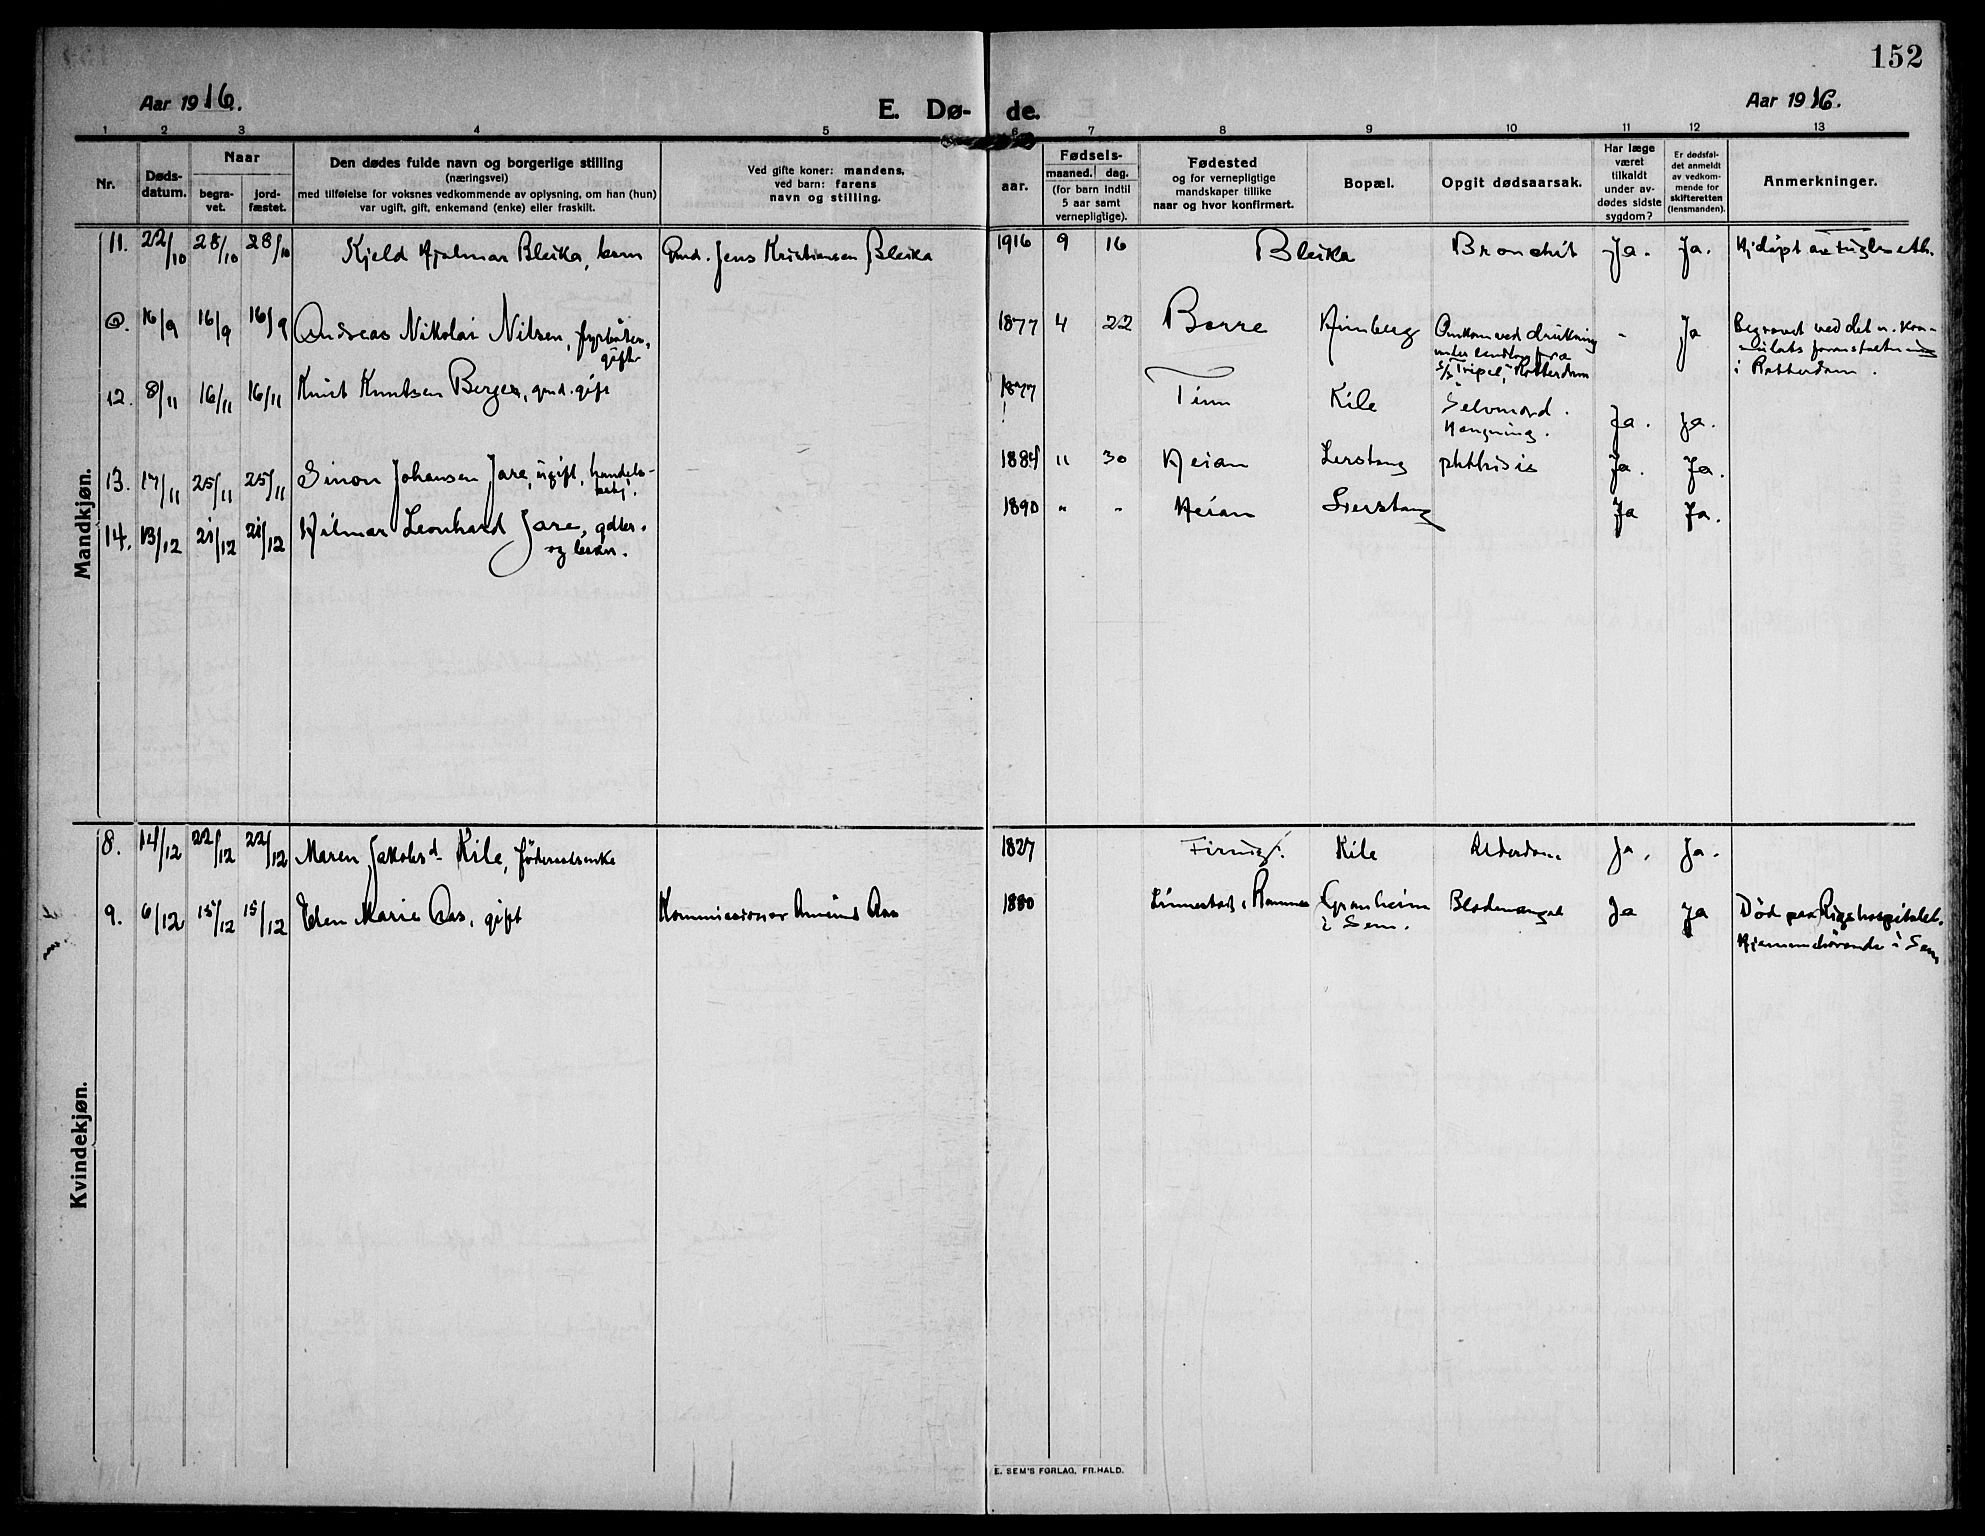 152
Aar 1916.
E. Dø-
de.
Aar 1916.
1 2 3 4 5 6 7 8 9 10 11 12 13
Nr.
Døds-
datum.
Naar
begra-
vet.
jord-
fæstet.
Den dødes fulde navn og borgerlige stilling
(næringsvei)
med tilføielse for voksnes vedkommende av oplysning, om han (hun)
var ugift, gift, enkemand (enke) eller fraskilt.
Ved gifte koner: mandens,
ved barn: farens
navn og stilling.
aar.
Fødsels-
maaned. dag.
(for barn indtil
5 aar samt
vernepligtige).
Fødested
og for vernepligtige
mandskaper tillike
naar og hvor konfirmert.
Bopæl.
Opgit dødsaarsak.
Har læge
været
tilkaldt
under av-
dødes sidste
sygdom?
Er dødsfal-
det anmeldt
av vedkom-
mende for
skifteretten
(lensmanden).
Anmerkninger.
Mandkjøn.
11. 22/10 28/10 28/10 Kjeld Hjalmar Bleika, barn Gmd. Jens Kristiansen Bleika 1916 9 16 Bleika Bronchit Ja. Ja. Hjdøpt av
@. 16/9 16/9 16/9 Andreas Nikolai Nilsen, fyrbøter,
gift
1877 4 22 Borre Omkom ved drukning
under
s/s "Tripel," Rotterdam
- Ja Begravet ved det n. kon-
sulats foranstaltning
i Rotterdam.
12. 8/11 16/11 16/11 Knut Knutsen Berger, gmd. gift 1877
!
Tinn Kile Selvmord.
Hængning.
Ja. Ja.
13. 17/11 25/11 25/11 Simon Johansen Jare, ugift, handels-
betj.
11 30 Heian Lerstang phthisis Ja. Ja.
14. 13/12 21/12 21/12 Hilmar Leonhard Jare,
1890 " " Heian Lerstang Ja Ja.
Kvindekjøn.
8. 14/12 22/12 22/12 Maren Jakobsd. Kile, föderaadsenke 1827 Kile Alderdom Ja. Ja.
9. 6/12 15/12 15/12 Elen Marie Aas, gift Kommissionær Amund Aas 1880 Linnestad i Ramnes Granheim
i Sem.
Blodmangel Ja Ja Död paa Rigshospitalet.
Hjemmehörende i Sem
E. SEM'S FORLAG, FR.HALD.